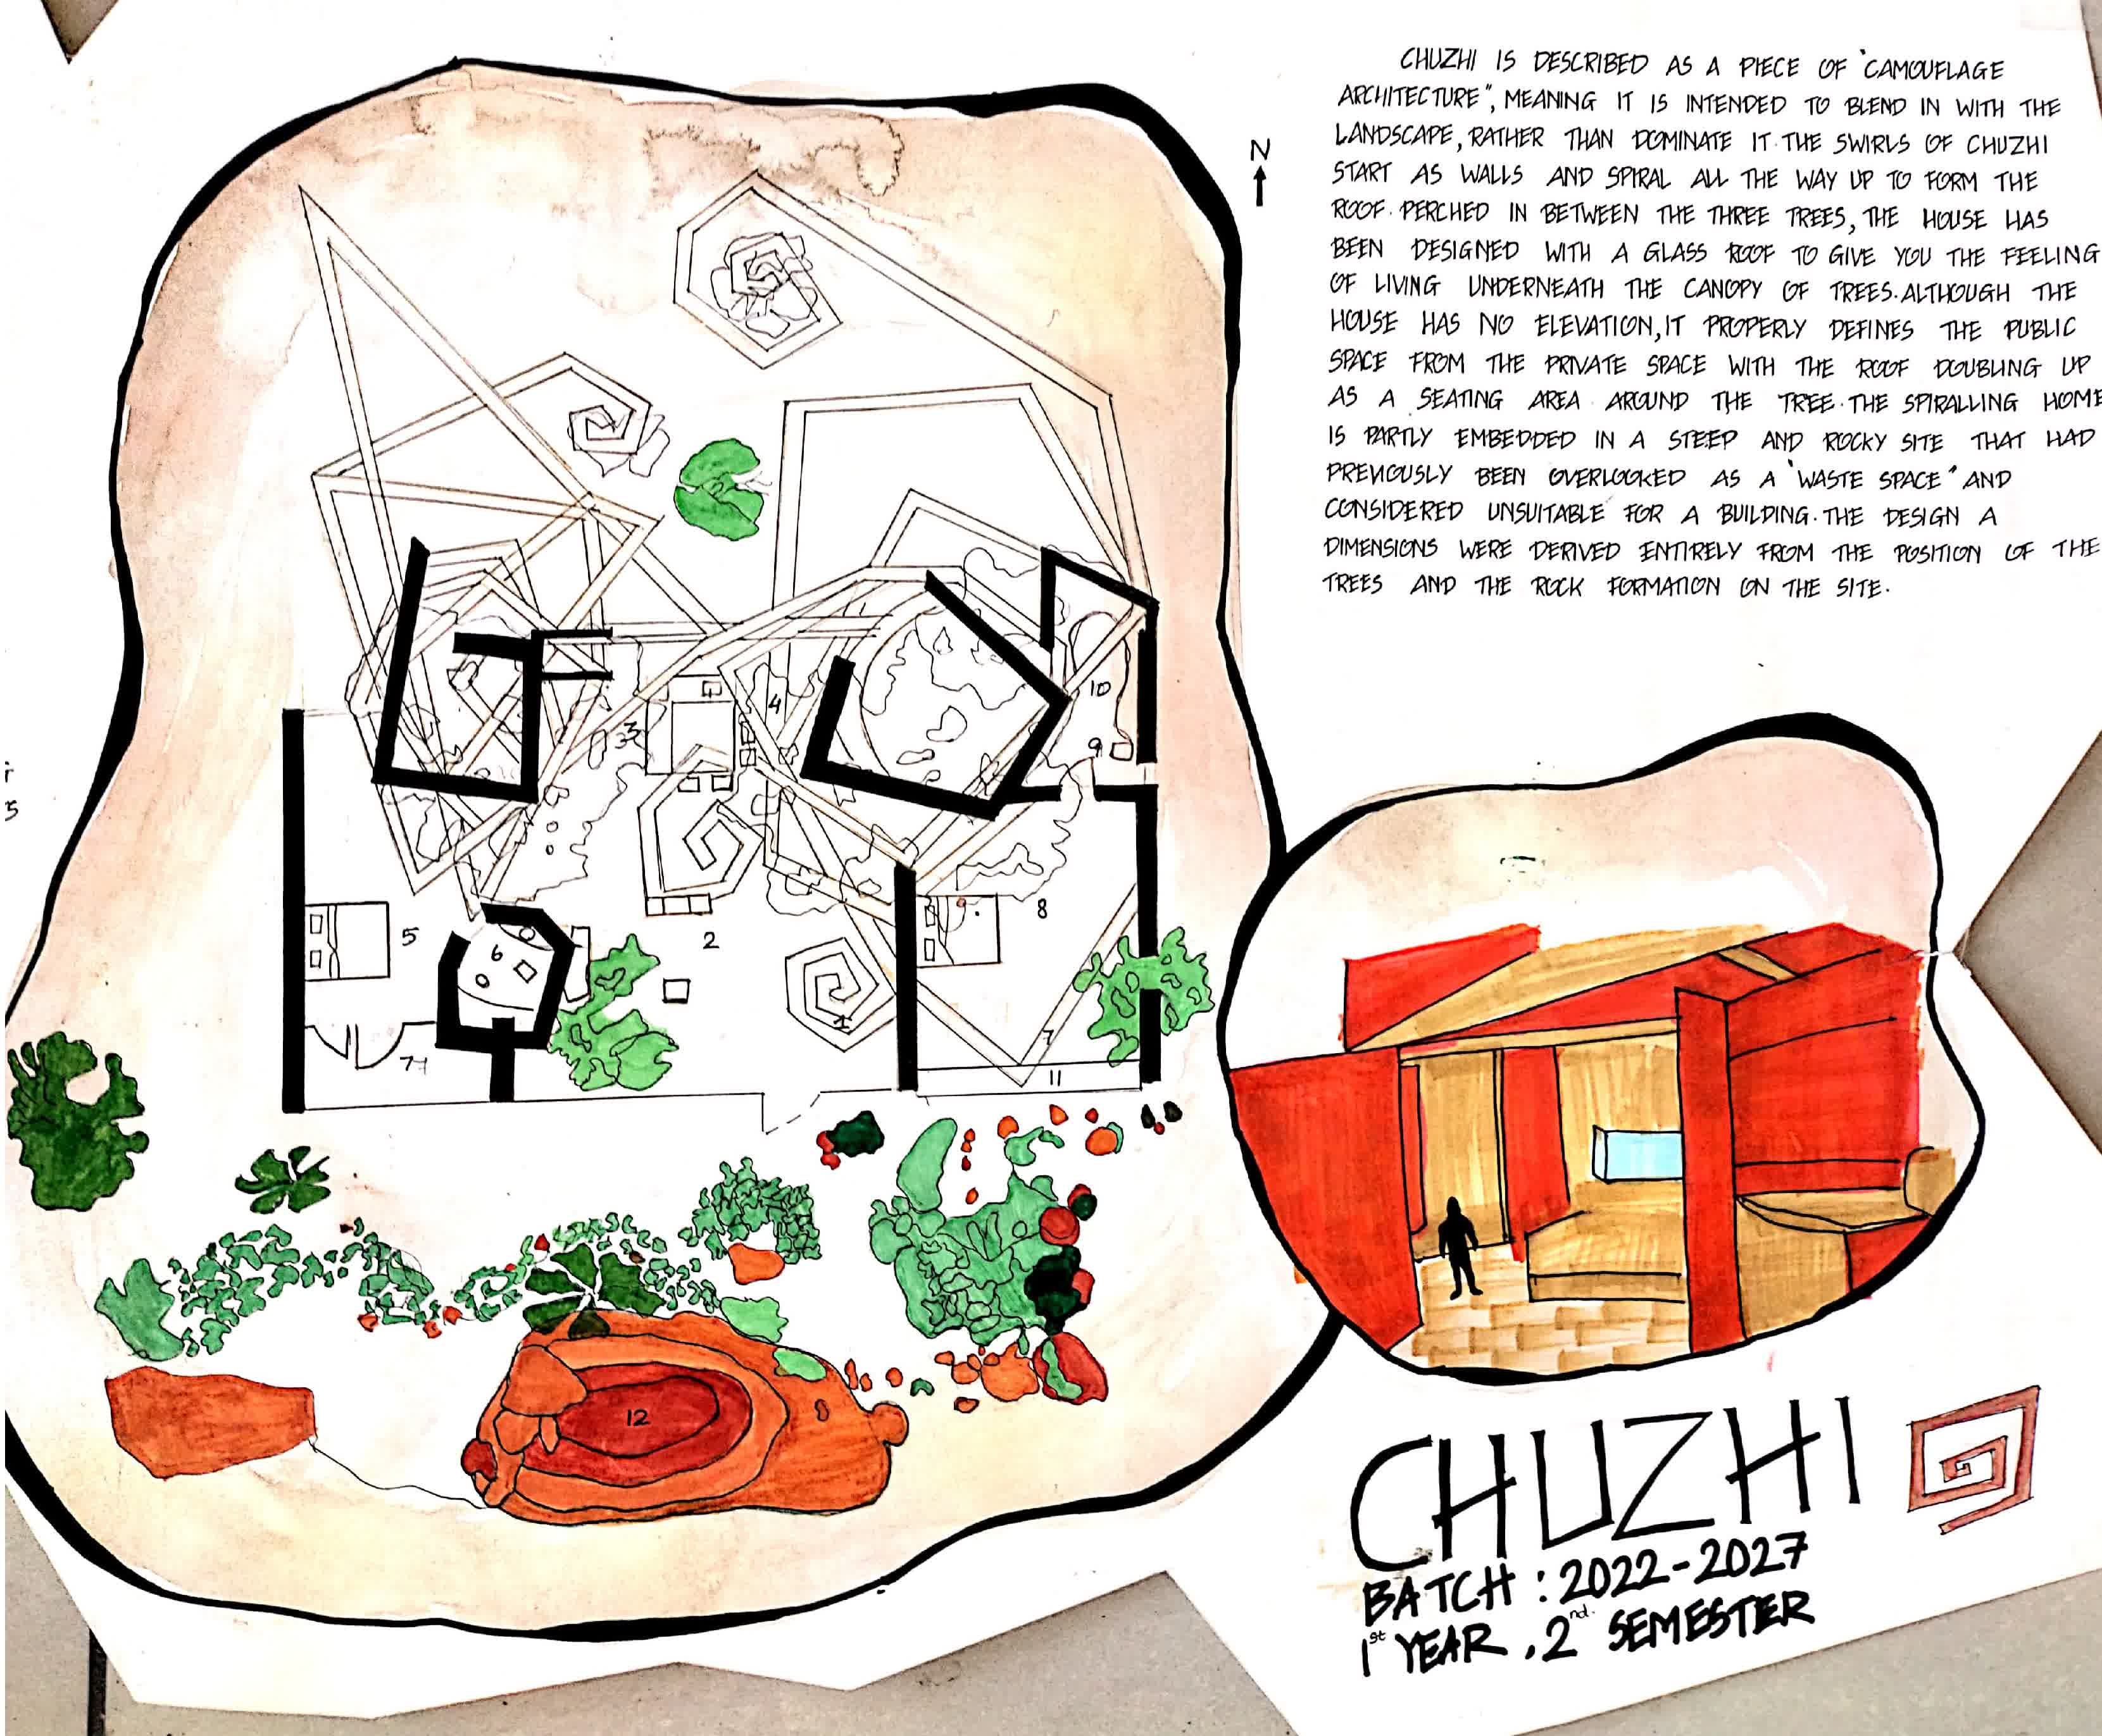 CHUZHI IS DESCRIBED AS A PIECE OF "CAMOUFLAGE
ARCHITECTURE", MEANING IT IS INTENDED TO BLEND IN WITH THE
LANDSCAPE, RATHER THAN DOMINATE IT. THE SWIRLS OF CHUZHI
START AS WALLS AND SPIRAL ALL THE WAY UP TO FORM THE
ROOF. PERCHED IN BETWEEN THE THREE TREES, THE HOUSE HAS
BEEN DESIGNED WITH A GLASS ROOF TO GIVE YOU THE FEELING
OF LIVING UNDERNEATH THE CANOPY OF TREES. ALTHOUGH THE
HOUSE HAS NO ELEVATION, IT PROPERLY DEFINES THE PUBLIC
SPACE FROM THE PRIVATE SPACE WITH THE ROOF DOUBLING UP
AS A SEATING AREA AROUND THE TREE. THE SPIRALLING HOME
IS PARTLY EMBEDDED IN A STEEP AND ROCKY SITE THAT HAD
PREVIOUSLY BEEN OVERLOOKED AS A "WASTE SPACE" AND
CONSIDERED UNSUITABLE FOR A BUILDING. THE DESIGN A
DIMENSIONS WERE DERIVED ENTIRELY FROM THE POSITION OF THE
TREES AND THE ROCK FORMATION ON THE SITE.
N
10
4
3
9
8
5
2
6
1
7
7
11
12
CHUZHI
BATCH : 2022-2027
1st YEAR , 2nd SEMESTER